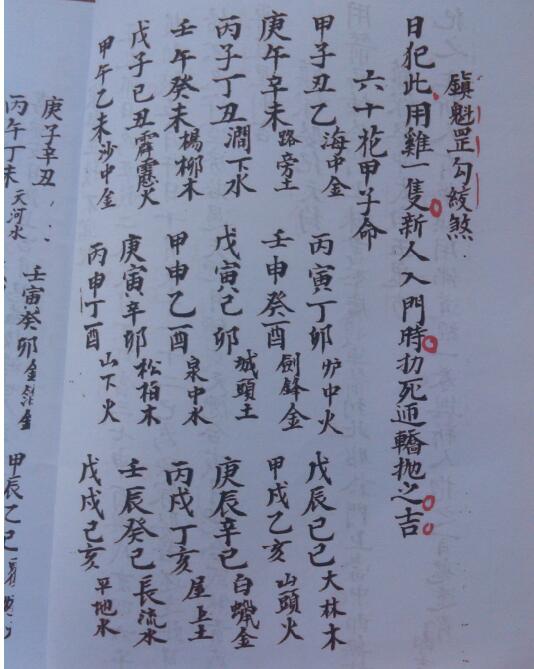 鎮魁罡勾絞煞
日犯此用雞一隻新人入門時扐死 轎拋之吉
六十花甲子命
甲子丑乙海中金 丙寅丁卯炉中火 戊辰己巳大林木
庚午辛未路旁土 壬申癸酉劍鋒金 甲戌乙亥山頭火
丙子丁丑澗下水 戊寅己卯城頭土 庚辰辛巳白蠟金
壬午癸未楊柳木 甲申乙酉泉中水 丙戌丁亥屋上土
戊子己丑霹靂火 庚寅辛卯松柏木 壬辰癸巳長流水
甲午乙未沙中金 丙申丁酉山下火 戊戌己亥平地水
庚子辛丑 壬寅癸卯金箔金 甲辰乙巳
丙午丁未天河水